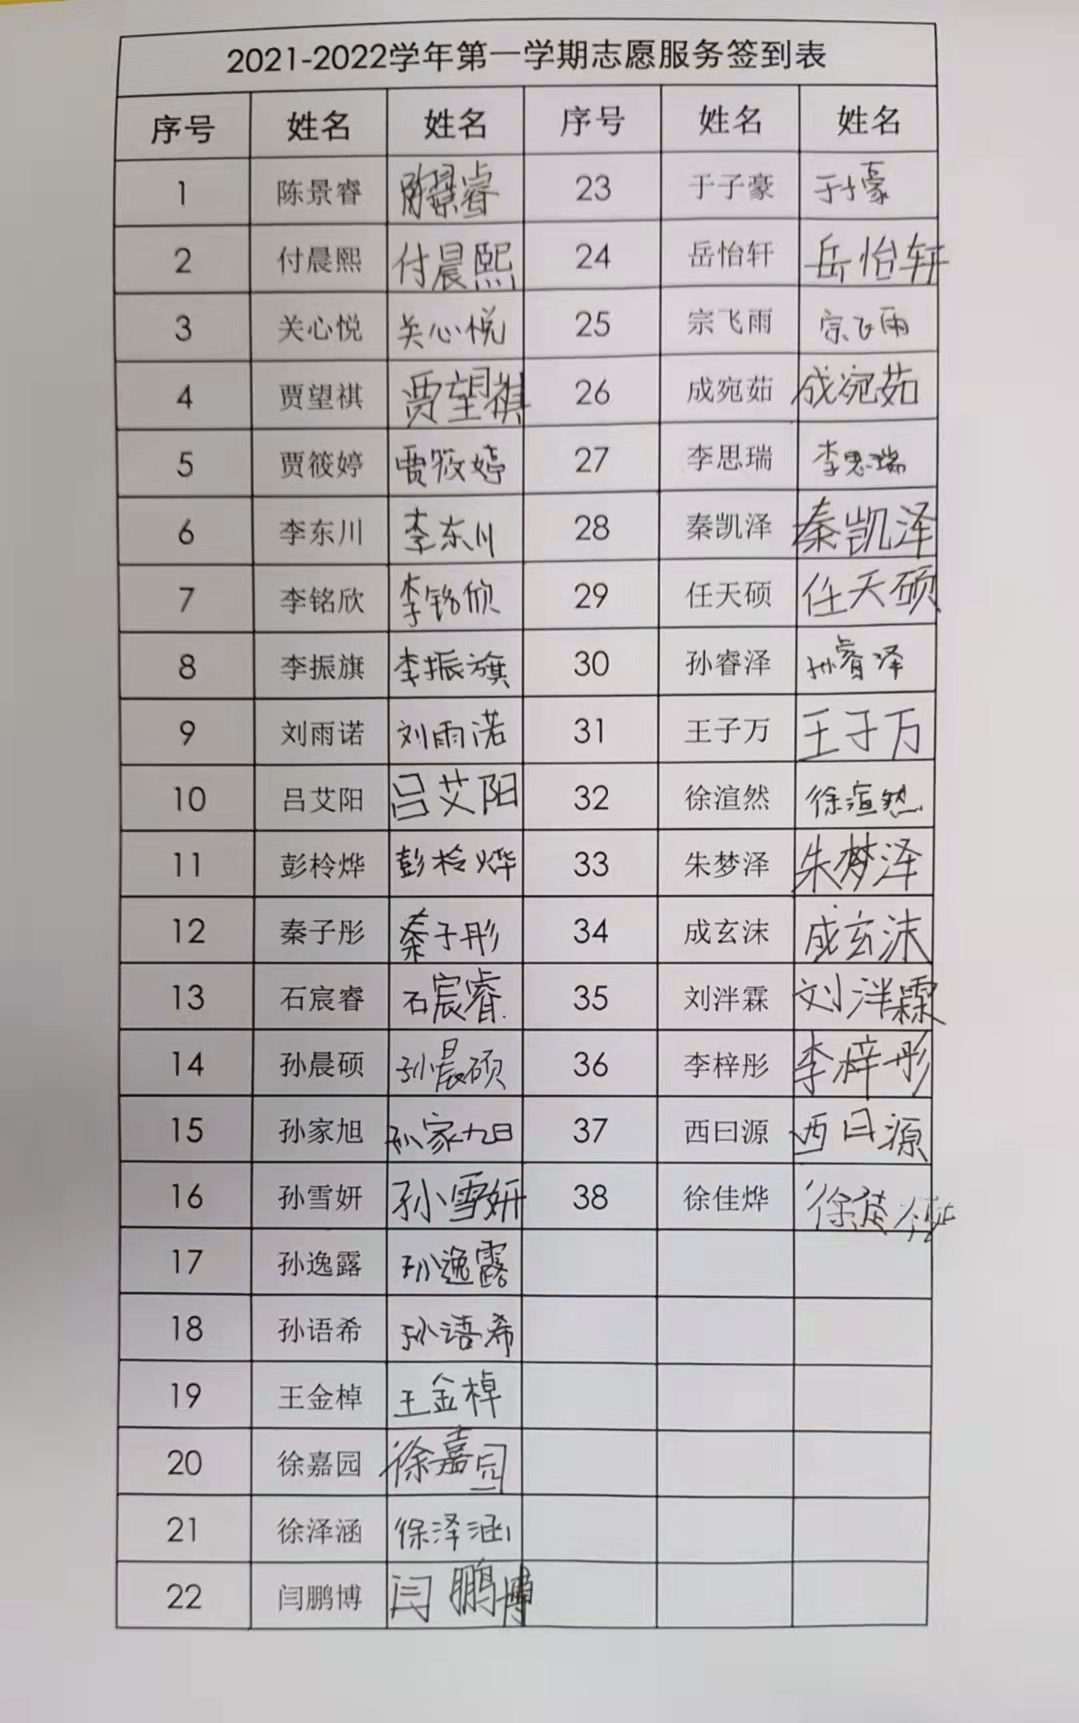 2021-2022学年第一学期志愿服务签到表
序号 姓名 姓名 序号 姓名 姓名
1 陈景睿 陈景睿 23 于子豪 于子豪
2 付晨熙 付晨熙 24 岳怡轩 岳怡轩
3 关心悦 关心悦 25 宗飞雨 宗飞雨
4 贾望祺 贾望祺 26 成宛茹 成宛茹
5 贾筱婷 贾筱婷 27 李思瑞 李思瑞
6 李东川 李东川 28 秦凯泽 秦凯泽
7 李铭欣 李铭欣 29 任天硕 任天硕
8 李振旗 李振旗 30 孙睿泽 孙睿泽
9 刘雨诺 刘雨诺 31 王子万 王子万
10 吕艾阳 吕艾阳 32 徐渲然 徐渲然
11 彭柃烨 彭柃烨 33 朱梦泽 朱梦泽
12 秦子彤 秦子彤 34 成玄沫 成玄沫
13 石宸睿 石宸睿 35 刘泮霖 刘泮霖
14 孙晨硕 孙晨硕 36 李梓彤 李梓彤
15 孙家旭 孙家旭 37 西曰源 西曰源
16 孙雪妍 孙雪妍 38 徐佳烨
17 孙逸露 孙逸露
18 孙语希 孙语希
19 王金棹 王金棹
20 徐嘉园 徐嘉园
21 徐泽涵 徐泽涵
22 闫鹏博 闫鹏博